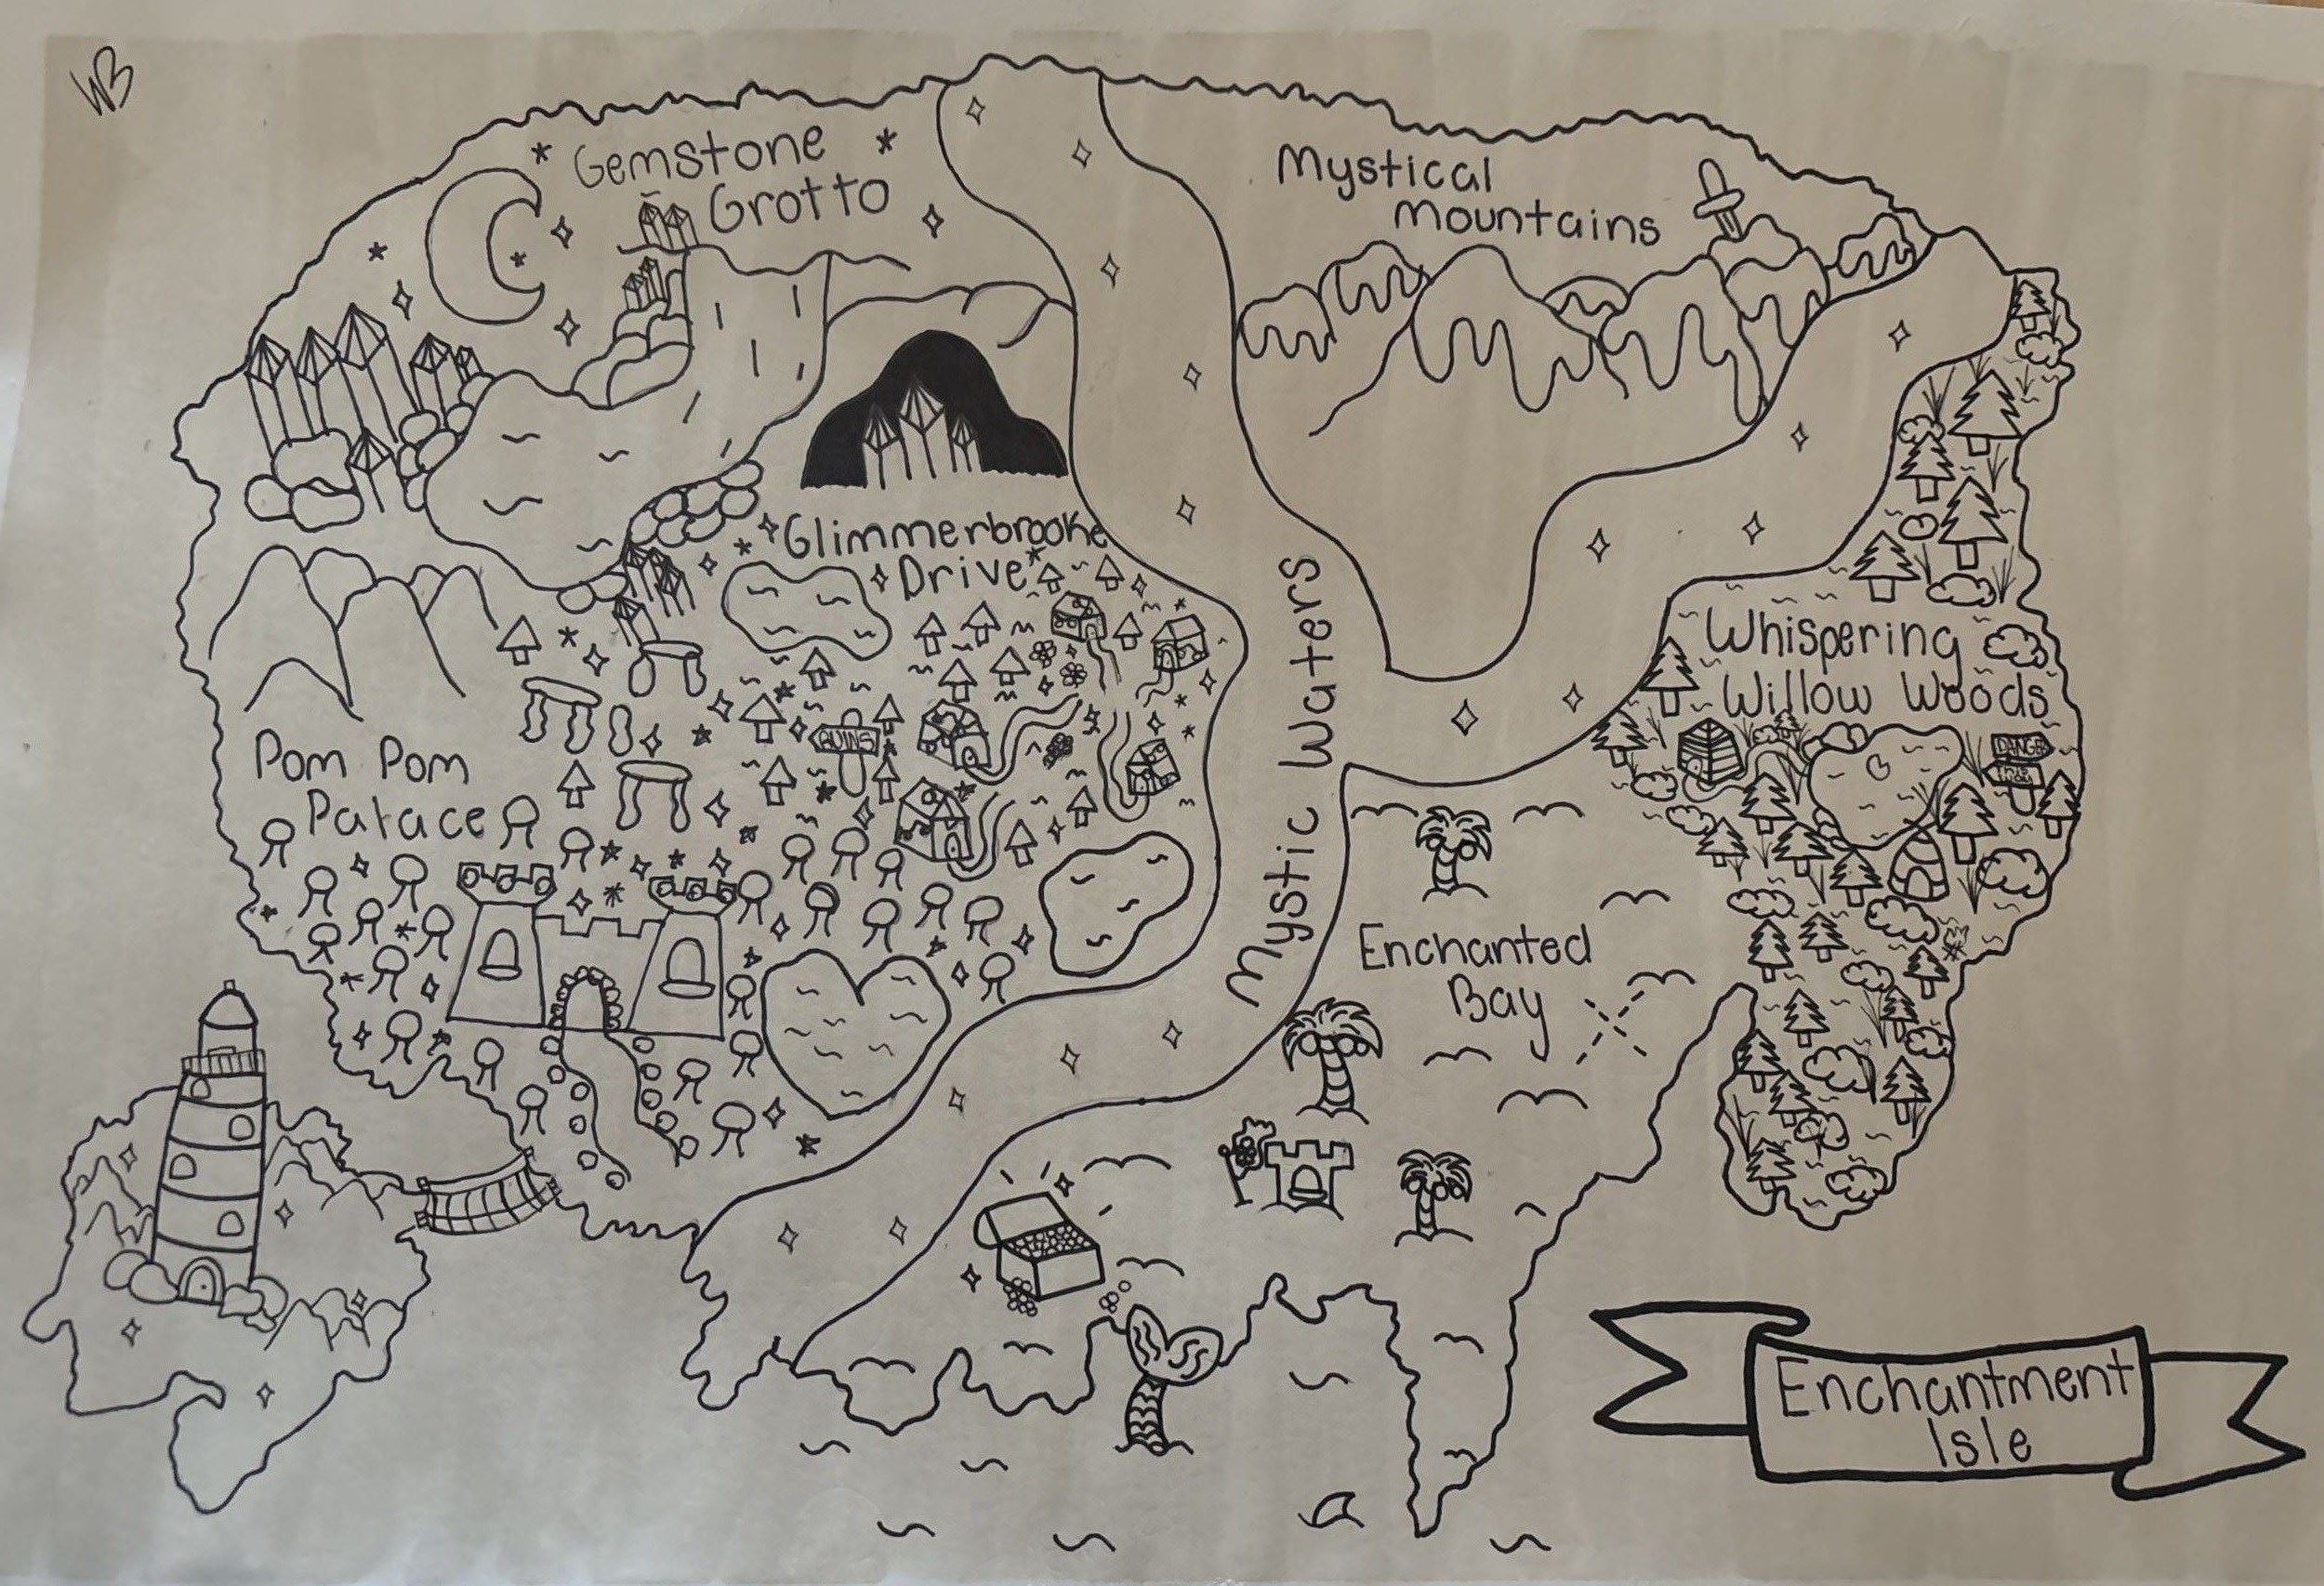 WB
Gemstone
Grotto
Mystical
Mountains
Glimmerbrooke
Drive
Mystic Waters
Whispering
Willow Woods
RUINS
Pom Pom
Palace
Enchanted
Bay
Enchantment
Isle